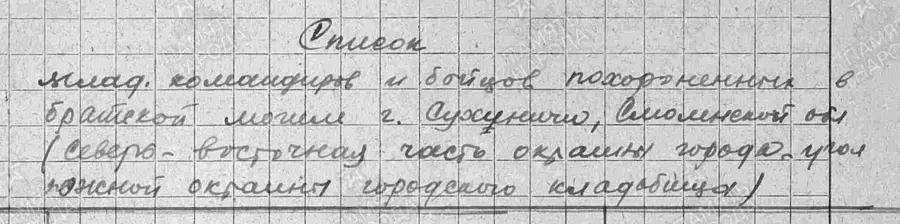 Список
млад. командиров и бойцов похороненных в
братской могиле г. Сухиничи, Смоленской обл
(северо-восточная часть окраины города-угол
южной окраины городского кладбища)